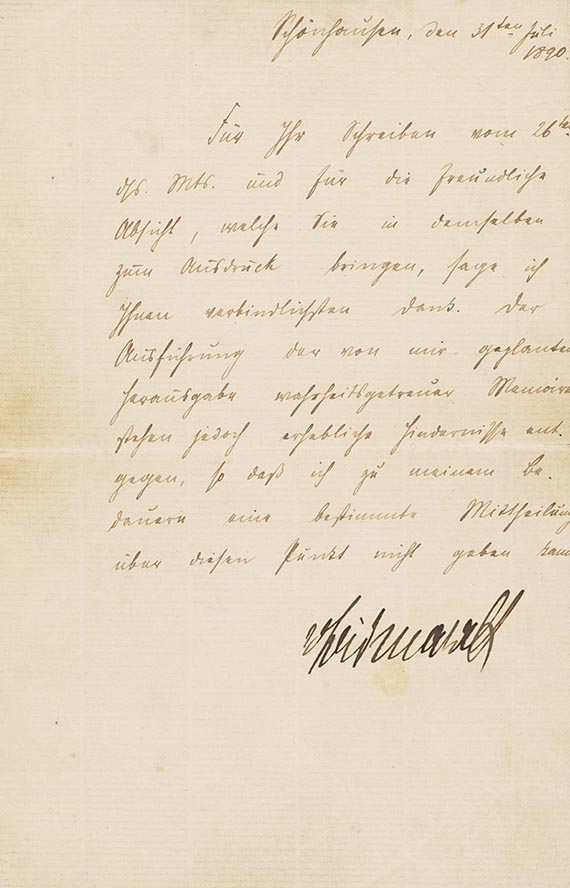 Schönhausen, den 31ten Juli
1890.
Für Ihr Schreiben vom 26ten
dss. Mts. und für die freundliche
Absicht, welche Sie in demselben
zum Ausdruck bringen, sage ich
Ihnen verbindlichsten Dank. Der
Ausführung der von mir geplanten
Herausgabe wahrheitsgetreuer Memoiren
stehen jedoch erhebliche Hindernisse ent-
gegen, so daß ich zu meinem Be-
dauern eine bestimmte Mittheilung
über diesen Punkt nicht geben kann
vBismarck